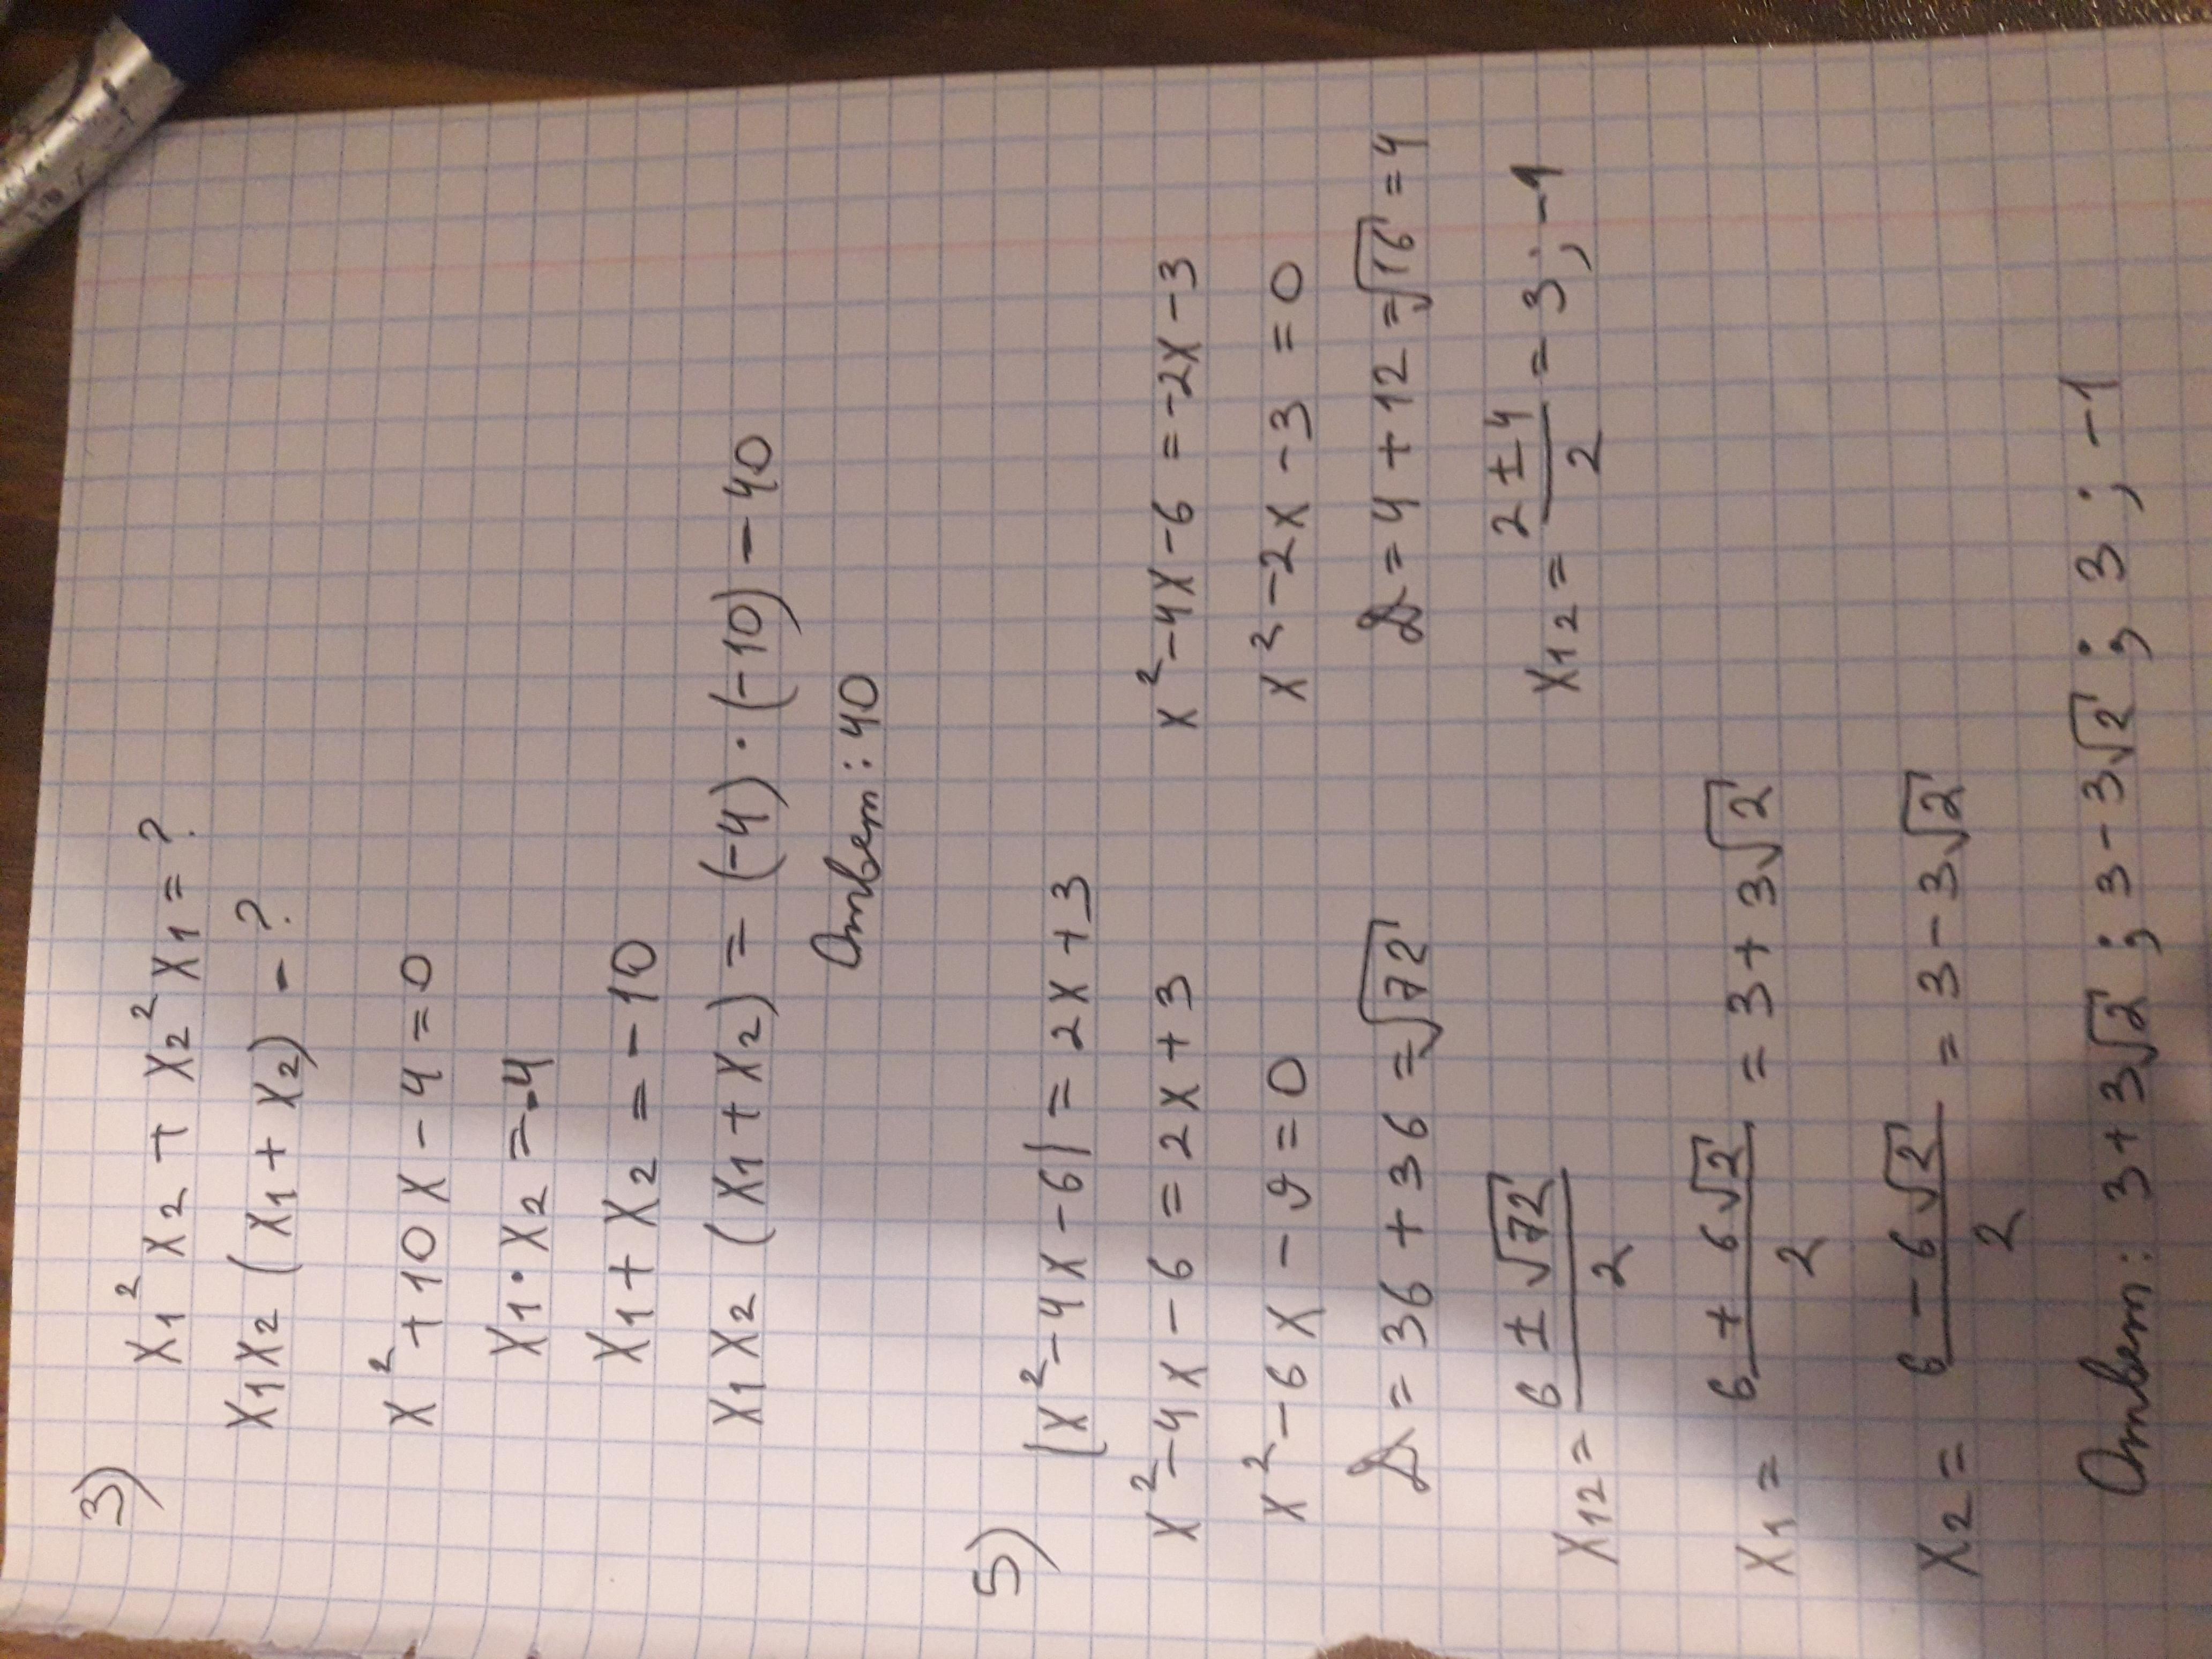 3)
x₁² x₂ + x₂² x₁ = ?
x₁x₂ (x₁ + x₂) - ?
x² + 10x - 4 = 0
x₁ · x₂ = -4
x₁ + x₂ = - 10
x₁ x₂ (x₁ + x₂) = (-4) · (-10) - 40
Ответ: 40
5)
|x² - 4x - 6| = 2x + 3
x² - 4x - 6 = 2x + 3
x² - 6x - 9 = 0
D = 36 + 36 = √72
x₁₂ = (6 ± √72)/2
x₁ = (6 + 6√2)/2 = 3 + 3√2
x₂ = (6 - 6√2)/2 = 3 - 3√2
x² - 4x - 6 = -2x - 3
x² - 2x - 3 = 0
D = 4 + 12 = √16 = 4
x₁₂ = (2 ± 4)/2 = 3; -1
Ответ: 3 + 3√2; 3 - 3√2; 3; -1